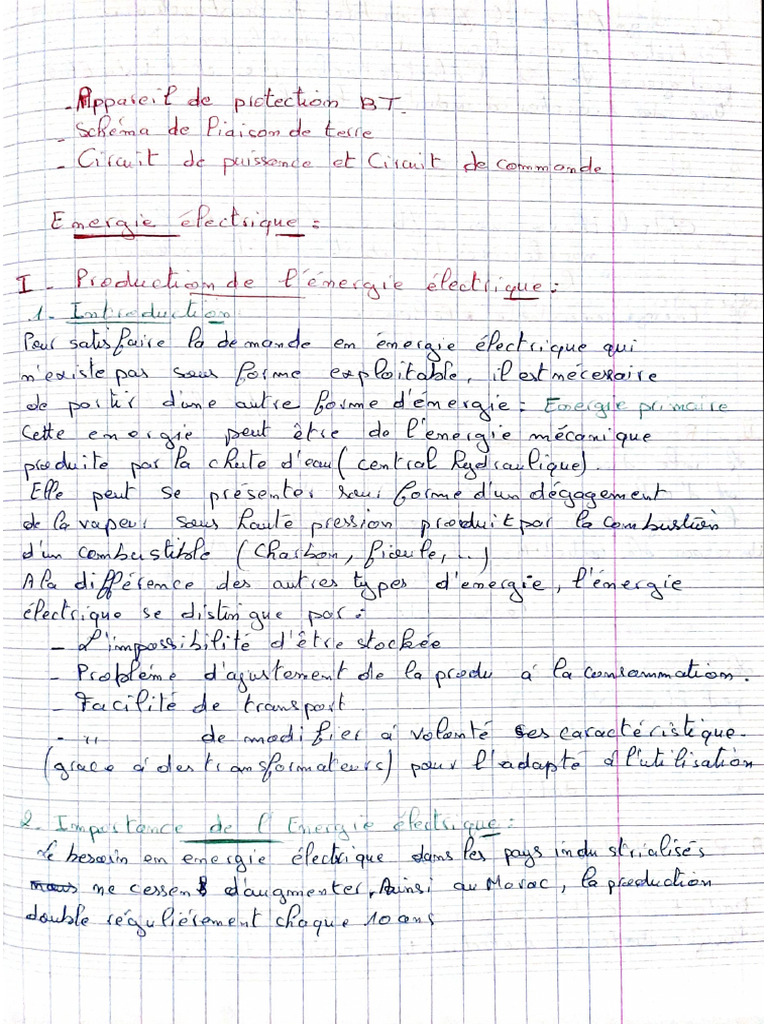 - Appareil de protection BT.
- Schéma de liaison de terre
- Circuit de puissance et Circuit de commande
Energie électrique :
I - Production de l'énergie électrique :
1. Introduction
Pour satisfaire la demande en énergie électrique qui
n'existe pas sous forme exploitable, il est nécessaire
de partir d'une autre forme d'énergie : Energie primaire
Cette energie peut être de l'energie mécanique
produite par la chute d'eau (central Hydraulique).
Elle peut se présenter sous forme d'un dégagement
de la vapeur sous haute pression produit par la combustion
d'un combustible (Charbon, fioule, ..)
A la différence des autres types d'energie, l'énergie
électrique se distingue par :
- L'impossibilité d'être stockée
- Problème d'ajustement de la produ à la consommation.
- Facilité de transport
- " de modifier à volonté ses caractéristique.
(grace à des transformateurs) pour l'adapté à l'utilisation
2. Importance de l'Energie électrique :
Le besoin en energie électrique dans les pays industrialisés
ne cessent d'augmenter, Ainsi au Maroc, la production
double régulièrement chaque 10 ans